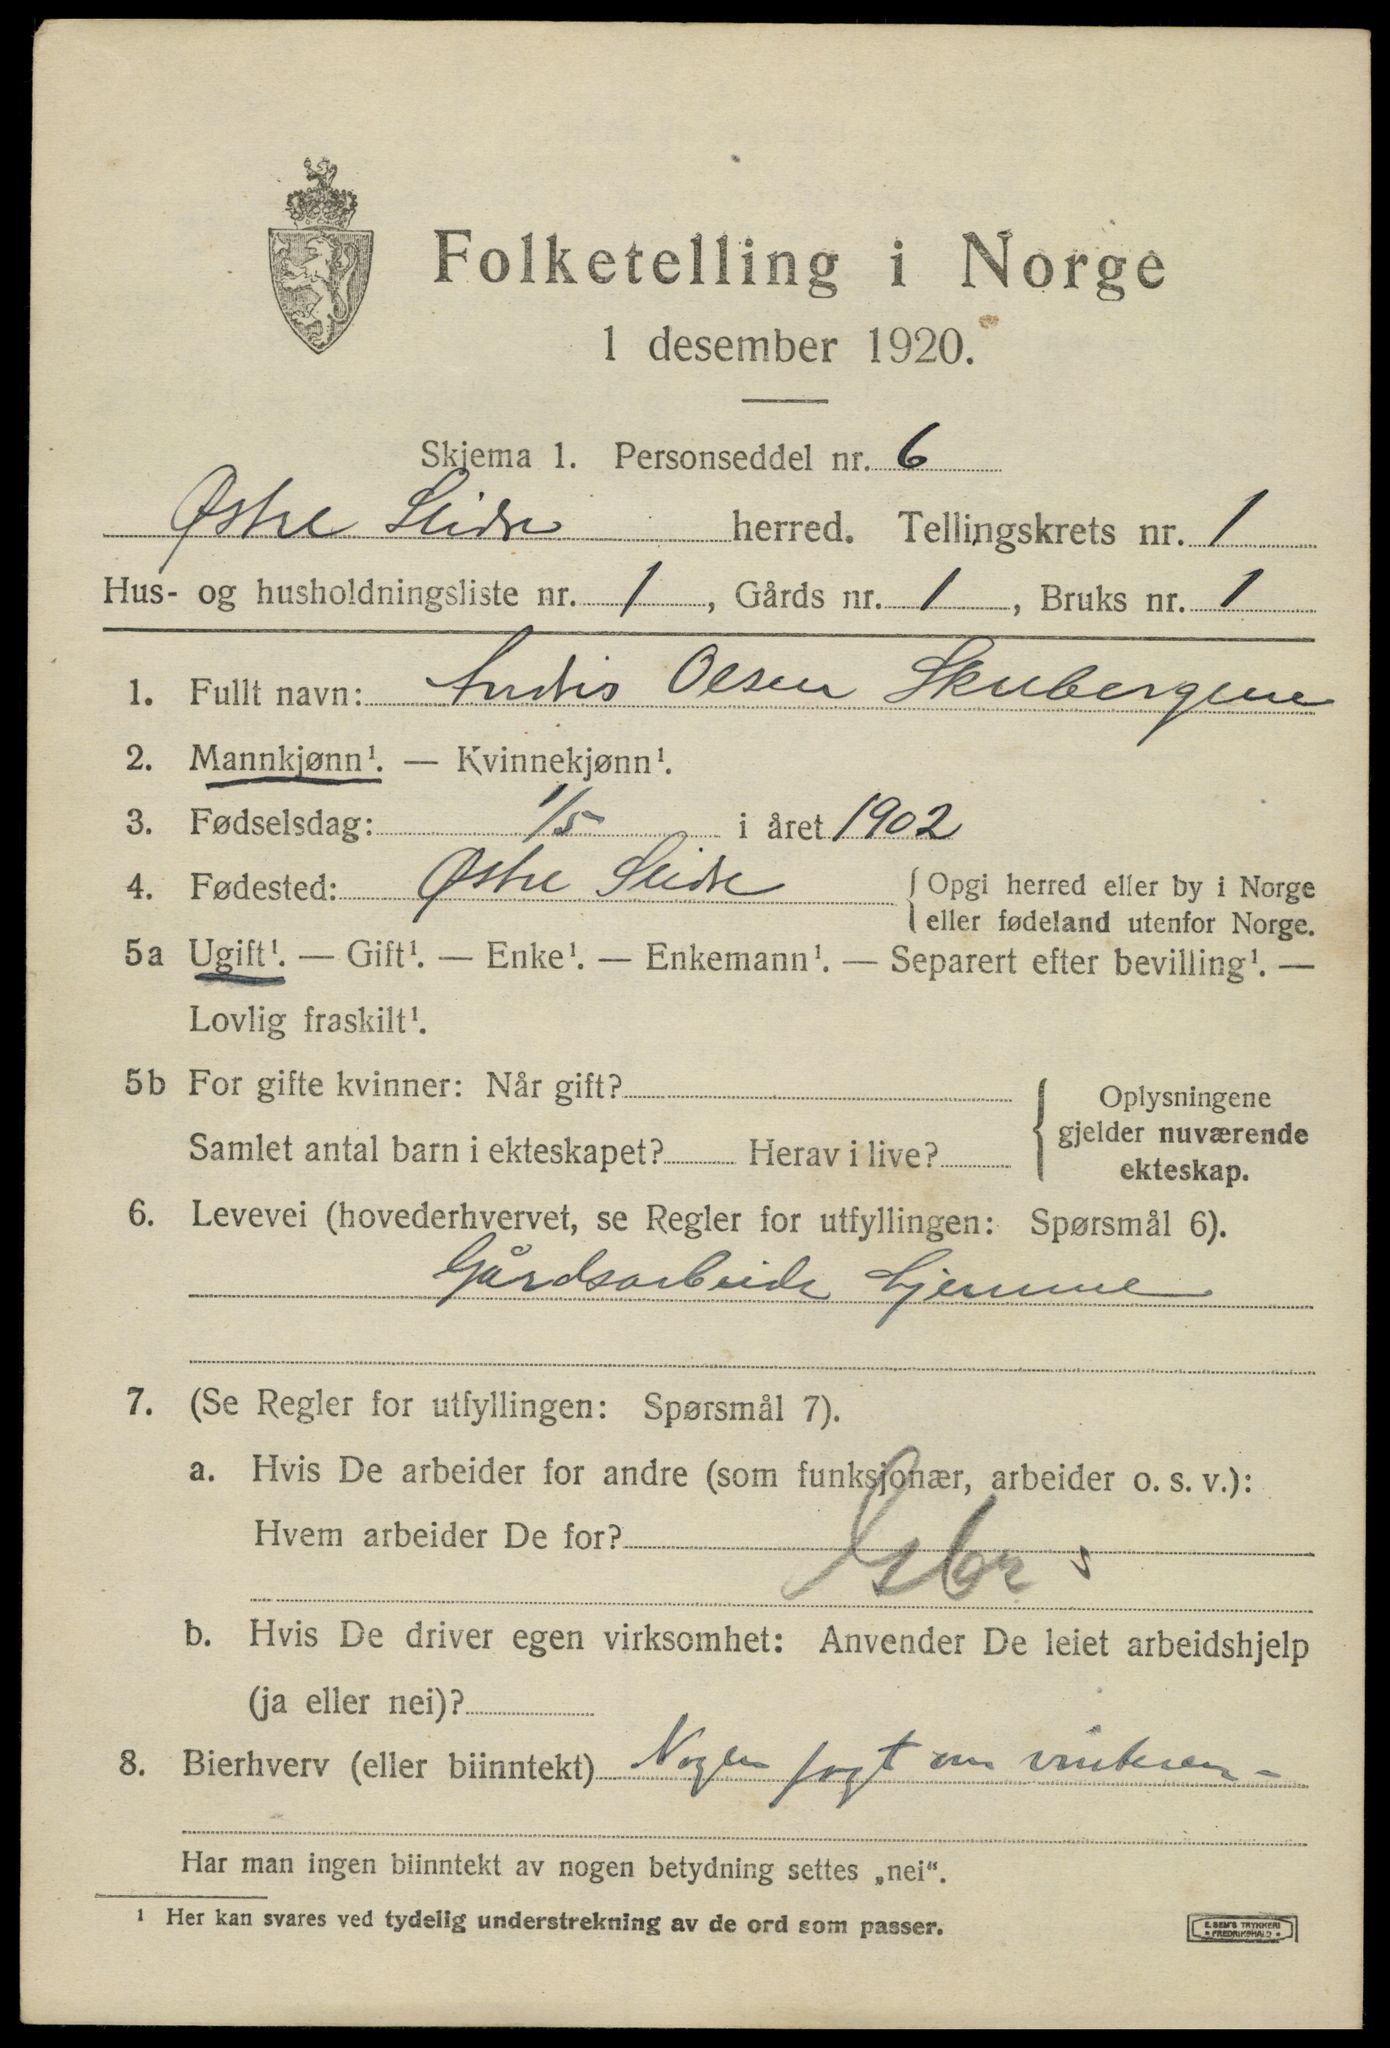 Folketelling i Norge
1 desember 1920.
Skjema 1. Personseddel nr. 6
Østre Slidre herred. Tellingskrets nr. 1
Hus- og husholdningsliste nr. 1, Gårds nr. 1, Bruks nr. 1
1. Fullt navn: Andris Olsen Skubergene
2. Mannkjønn¹. — Kvinnekjønn¹.
3. Fødselsdag: 1/5 i året 1902
4. Fødested: Østre Slidre { Opgi herred eller by i Norge
eller fødeland utenfor Norge.
5a Ugift¹. — Gift¹. — Enke¹. — Enkemann¹. — Separert efter bevilling¹. —
Lovlig fraskilt¹.
5b For gifte kvinner: Når gift?
Samlet antal barn i ekteskapet? Herav i live?
{ Oplysningene
gjelder nuværende
ekteskap.
6. Levevei (hovederhvervet, se Regler for utfyllingen: Spørsmål 6).
Gårdsarbeide hjemme
7. (Se Regler for utfyllingen: Spørsmål 7).
a. Hvis De arbeider for andre (som funksjonær, arbeider o. s. v.):
Hvem arbeider De for?
Gbr s
b. Hvis De driver egen virksomhet: Anvender De leiet arbeidshjelp
(ja eller nei)?
8. Bierhverv (eller biinntekt) Nogen jagt om vinteren -
Har man ingen biinntekt av nogen betydning settes „nei“.
¹ Her kan svares ved tydelig understrekning av de ord som passer.
E. SEM'S TRYKKERI
• FREDRIKSHALD •